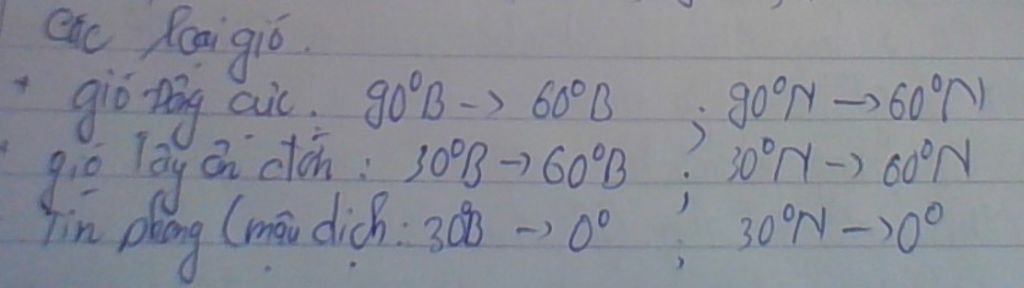 Các loại gió.
* gió Đông cực. 90°B -> 60°B ; 90°N -> 60°N
* gió Tây ôn đới : 30°B -> 60°B ; 30°N -> 60°N
Tín phong (mậu dịch : 30°B -> 0° ; 30°N -> 0°